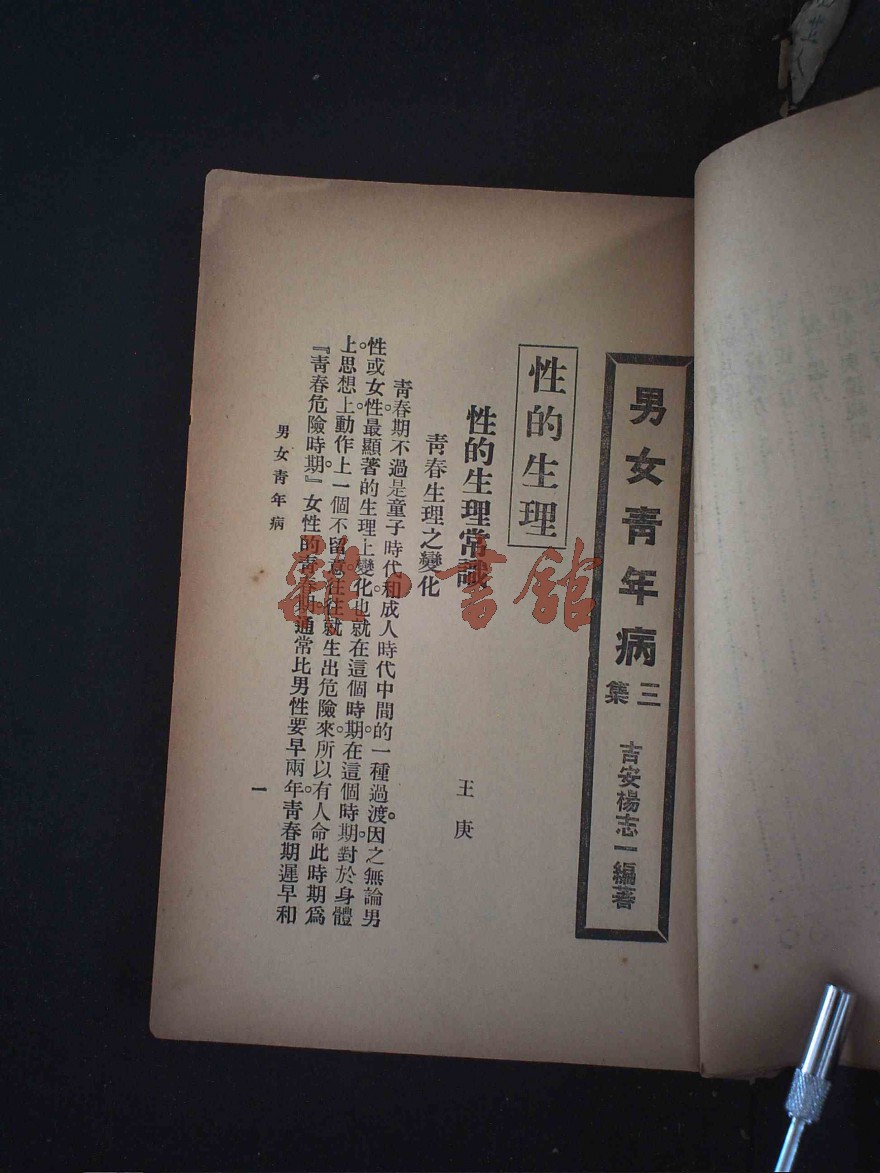 男女青年病 三集 吉安楊志一編著
性的生理
性的生理常識
青春生理之變化
王庚
青春期不過是童子時代和成人時代中間的一種過渡。因之無論男
性或女性。最顯著的生理上變化。也就在這個時期。在這個時期。對於身體
上思想上動作上一個不留意。往往就生出危險來。所以有人命此時期爲
『青春危險時期』女性的青春期。通常比男性要早兩年。青春期遲早和
男女青年病
一
雜·書館